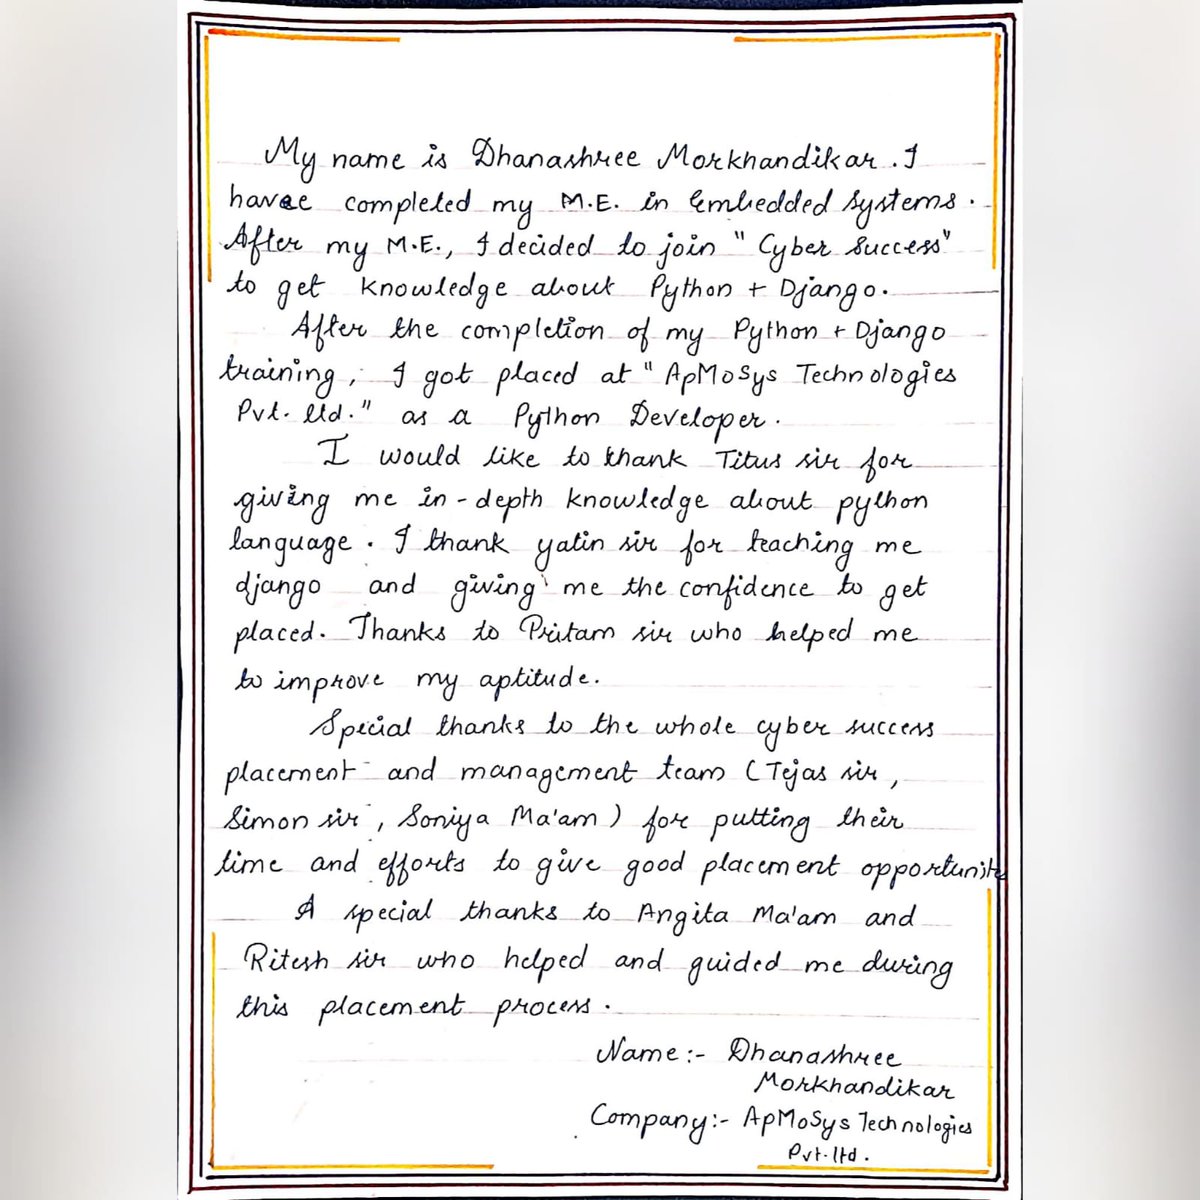 My name is Dhanashree Morkhandikar. I
havee completed my M.E. in Embedded Systems.
After my M.E., I decided to join "Cyber Success"
to get knowledge about Python + Django.
After the completion of my Python + Django
training, I got placed at "ApMoSys Technologies
Pvt. ltd." as a Python Developer.
I would like to thank Titus sir for
giving me in-depth knowledge about python
language. I thank yatin sir for teaching me
django and giving me the confidence to get
placed. Thanks to Pritam sir who helped me
to improve my aptitude.
Special thanks to the whole cyber success
placement and management team (Tejas sir,
Simon sir, Soniya Ma'am) for putting their
time and efforts to give good placement opportunites
A special thanks to Angita Ma'am and
Ritesh sir who helped and guided me during
this placement process.
Name:- Dhanashree
Morkhandikar
Company:- ApMoSys Technologies
Pvt. ltd.